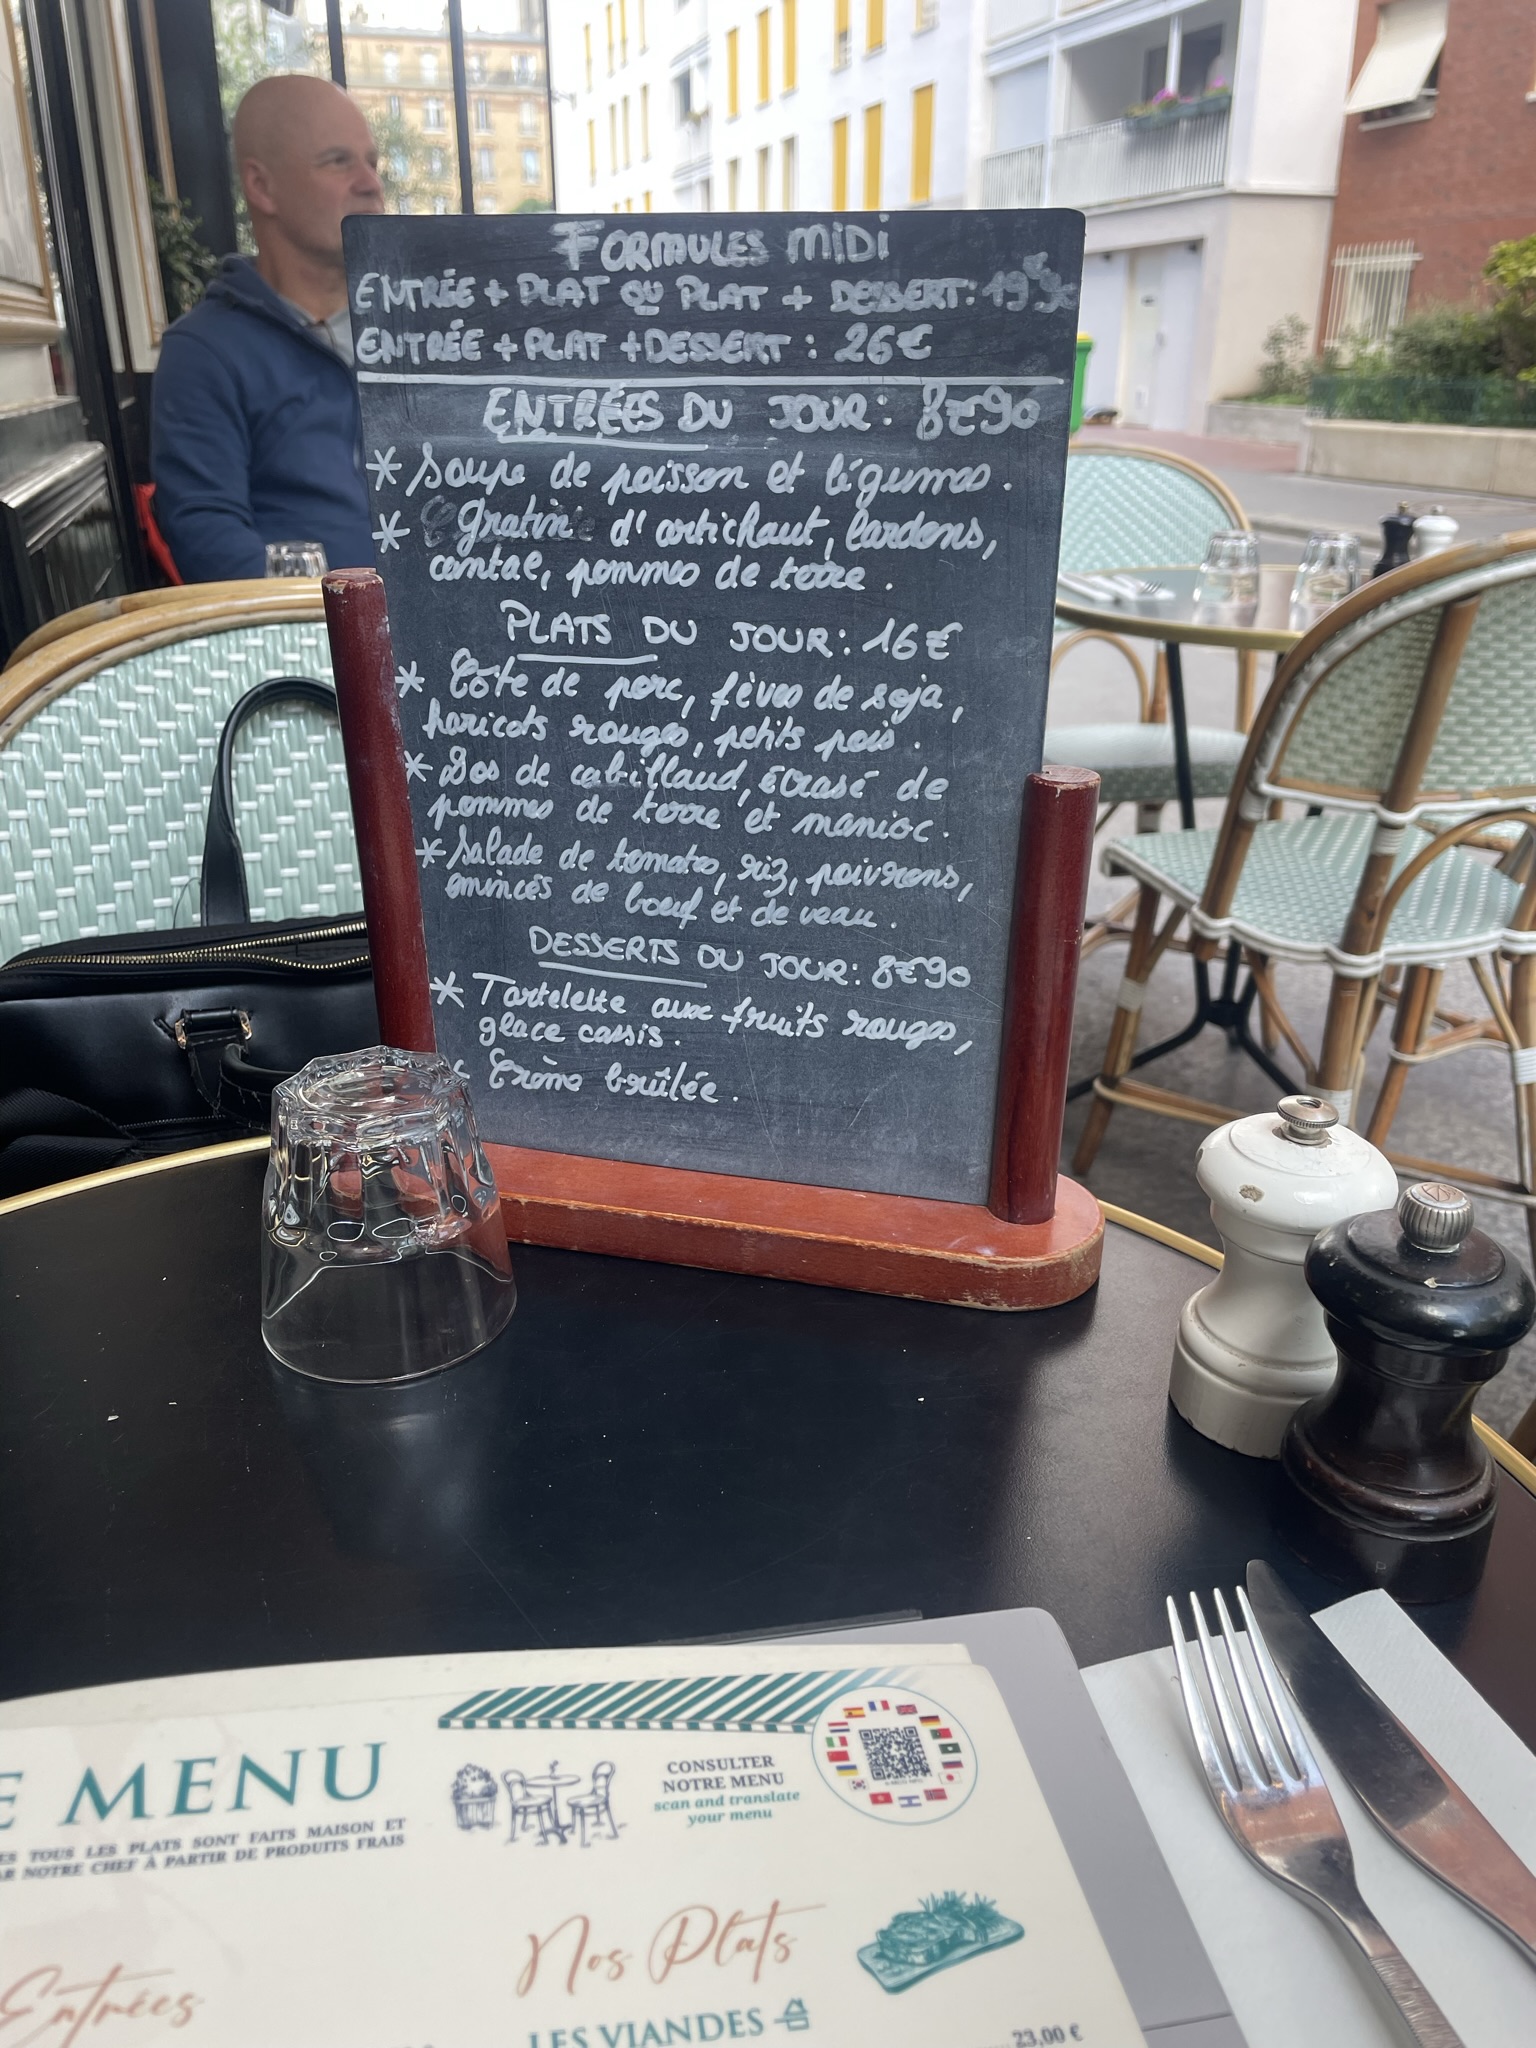 FORMULES MIDI
ENTRÉE + PLAT OU PLAT + DESSERT: 19€90
ENTRÉE + PLAT + DESSERT : 26€
ENTRÉES DU JOUR: 8€90
* Soupe de poisson et légumes.
* Gratin d'artichaut, lardons,
cantal, pommes de terre.
PLATS DU JOUR: 16€
* Côte de porc, fèves de soja,
haricots rouges, petits pois.
* Dos de cabillaud, écrasé de
pommes de terre et manioc.
* Salade de tomates, riz, poivrons,
émincés de boeuf et de veau.
DESSERTS DU JOUR: 8€90
* Tartelette aux fruits rouges,
glace cassis.
* Crème brûlée.
E MENU
ES TOUS LES PLATS SONT FAITS MAISON ET
AR NOTRE CHEF À PARTIR DE PRODUITS FRAIS
CONSULTER
NOTRE MENU
scan and translate
your menu
Entrées
Nos Plats
LES VIANDES
23,00 €